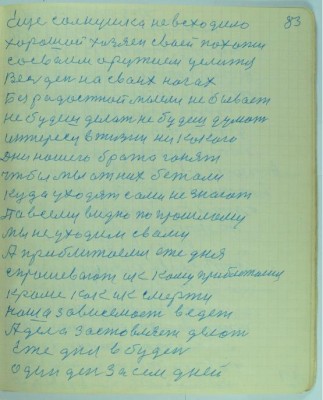 83
Еще солнушка невсходило
хороший хозяен своей похожи
сосвоим оружием целитя
Весь ден на своих ногах
Без радостной мысли не бывает
не будеш делат не будеш думат
интересу втизни ни какого
Дни нашего брата гонят
чтбы мы от них бетали
куда уходят сами не знают
Давсеми видно по прошлому
мы не уходим свами
А приблитаеми еже дня
спрошевают ик кому приблитаеми
кроме как ик смерти
наша зависемост ведет
А дела заставляет делат
Еже дня в буден
один ден засем дней